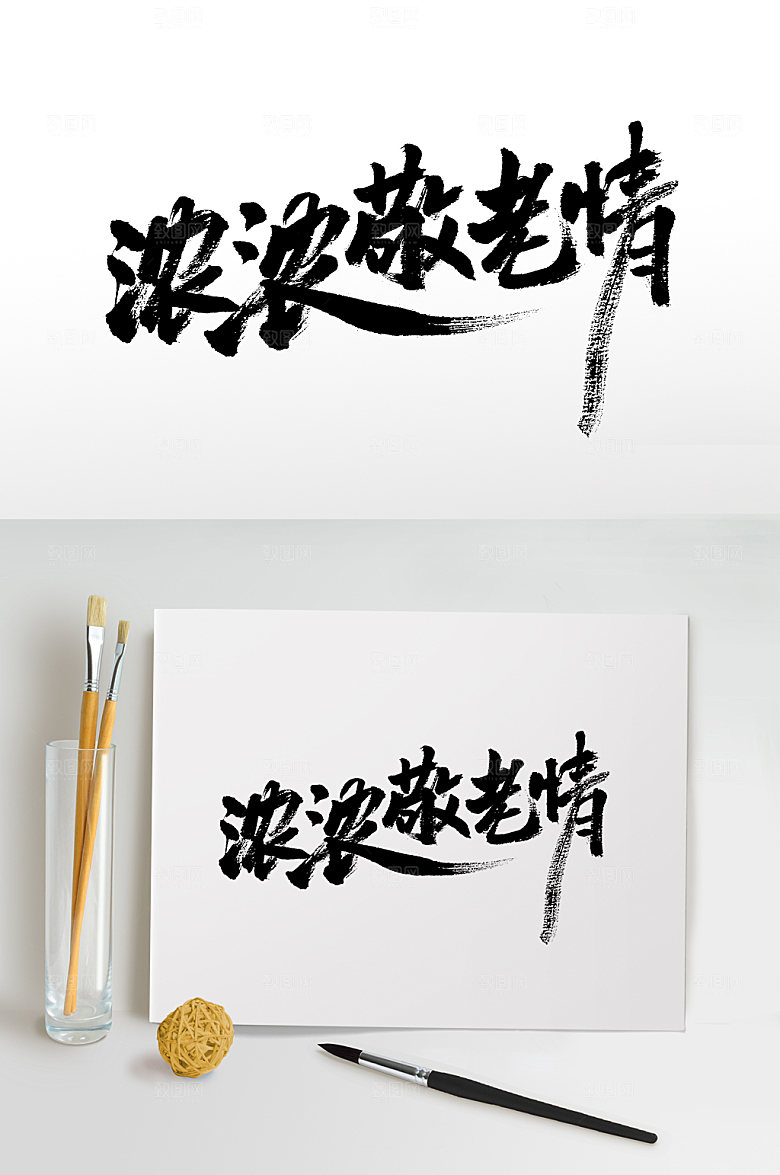 浓浓敬老情
浓浓敬老情